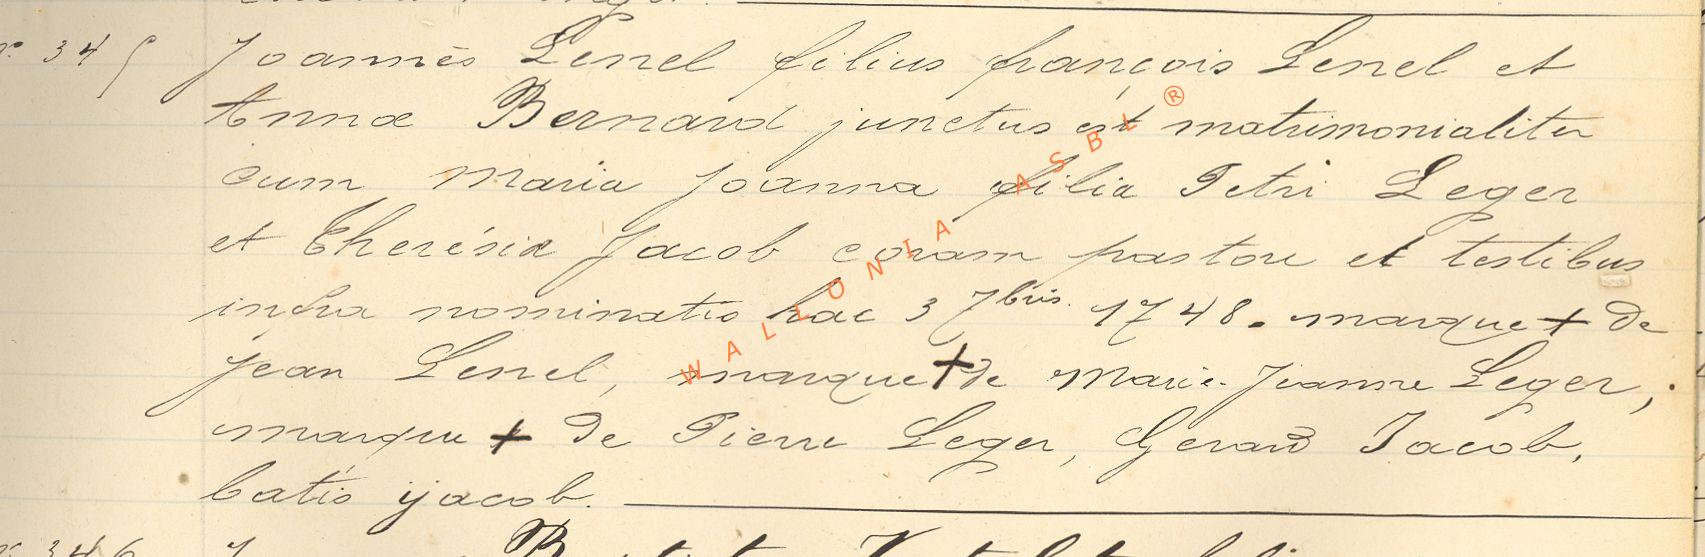 nº 345 Joannès Lenel filius françois Lenel et
Annæ Bernard junctus est matrimonialiter
cum Maria Joanna filia Petri Leger
et Therésiæ Jacob coram pastore et testibus
infra nominatis hac 3 7bris 1748. marque + De
Jean Lenel, marque + de Marie-Jeanne Leger,
marque + De Pierre Leger, Gerard Jacob,
batis ijacob.
WALLONIA ASBL ®
nº 346